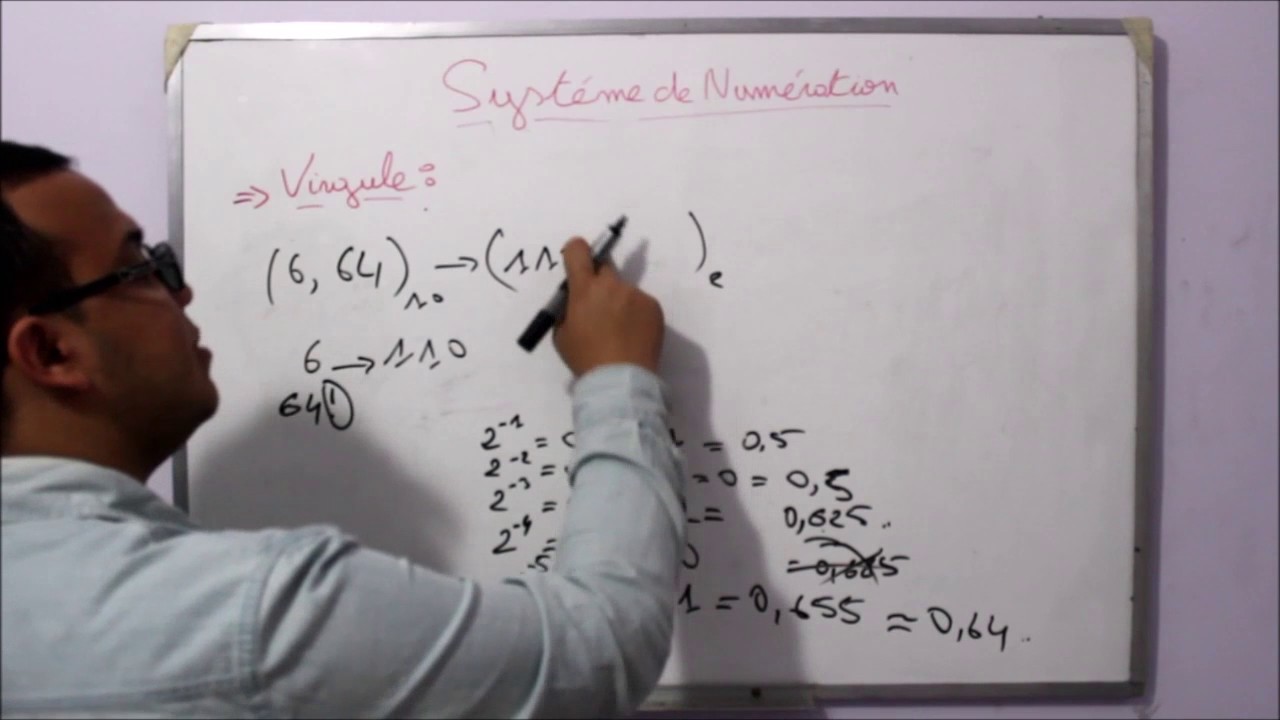 Systéme de Numération
=> Virgule :
(6, 64)10 → (11 )2
6 → 110
64
2^-1 = = 0,5
2^-2 = = 0 = 0,5
2^-3 = = 0,625..
2^-4 = = 0,625
-5 1 = 0,655 ≈ 0,64..